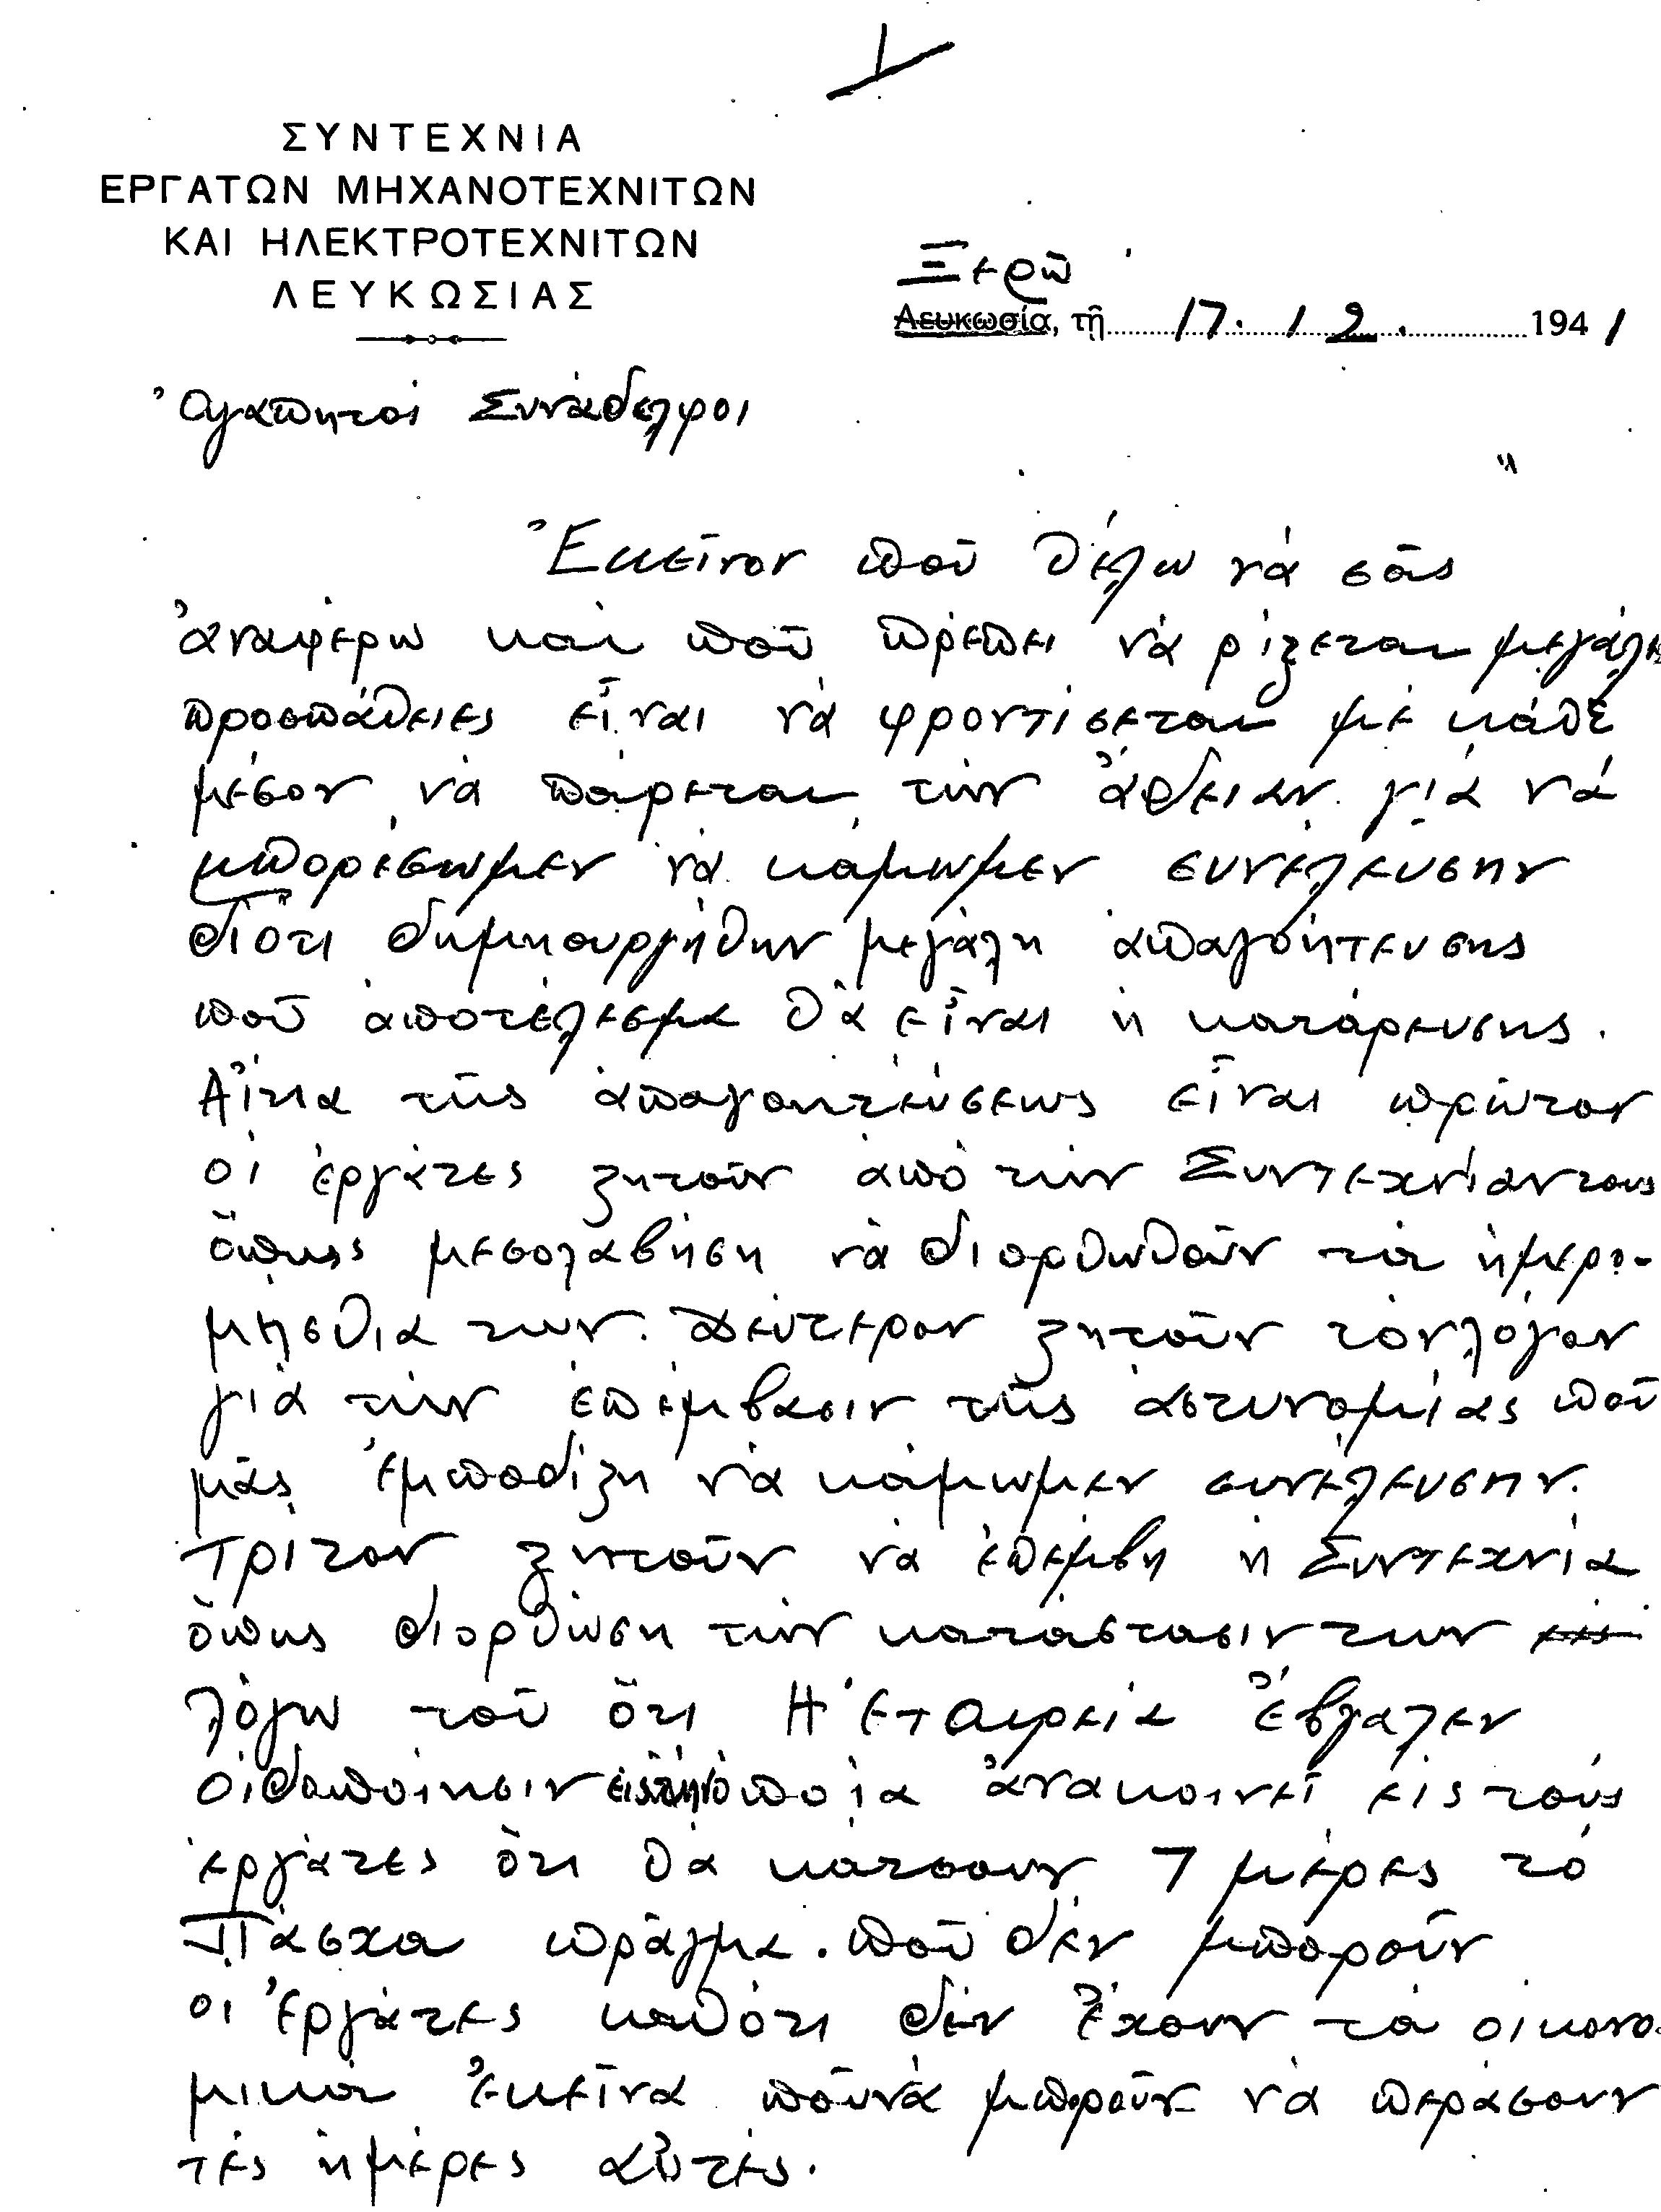 1
ΣΥΝΤΕΧΝΙΑ
ΕΡΓΑΤΩΝ ΜΗΧΑΝΟΤΕΧΝΙΤΩΝ
ΚΑΙ ΗΛΕΚΤΡΟΤΕΧΝΙΤΩΝ
ΛΕΥΚΩΣΙΑΣ
Ξερῶ
Λευκωσία, τῇ 17. 12. 1941
Ἀγαπητοί Συνάδελφοι
Ἐκεῖνον ποῦ θέλω νά σᾶς
ἀναφέρω καί ποῦ πρέπει νά ρίζεται μεγάλες
προσπάθειες εἶναι νά φροντίσεται μέ κάθε
μέσον νά πάρεται τήν ἄδειαν γιά νά
μπορέσωμεν νά κάμωμεν συνέλευσην
διότι δημηουργήθην μεγάλη ἀπαγοήτευσης
ποῦ ἀποτέλεσμα θά εἶναι ἡ κατάρευσης.
Αἴτια τῆς ἀπαγοητεύσεως εἶναι πρώτον
οἱ ἐργάτες ζητοῦν ἀπό τήν Συντεχνίαν τους
ὅπως μεσολαβήση νά διορθωθοῦν τά ἡμερο-
μησθια των. Δεύτερον ζητοῦν τόν λόγον
γιά τήν ἐπέμβασιν τῆς ἀστυνομίας ποῦ
μᾶς ἐμποδίζη νά κάμωμεν συνέλευσην.
Τρίτον ζητοῦν νά ἐπέμβη ἡ Συντεχνία
ὅπως διορθώση τήν κατάστασιν των
λόγω τοῦ ὅτι Ἡ Ἑταιρεία Ἔβγαλεν
οἰδοποίησιν εἰς τήν ὁποία ἀνακοινεῖ εἰς τούς
ἐργάτες ὅτι θά κάτσουν 7 μέρες τό
Πάσχα πρᾶγμα. ποῦ δέν μποροῦν
οἱ Ἐργάτες καθότι δέν Ἔχουν τά οἰκονο-
μικά Ἐκεῖνα ποῦ νά μποροῦν νά περάσουν
τές ἡμέρες αὐτές.